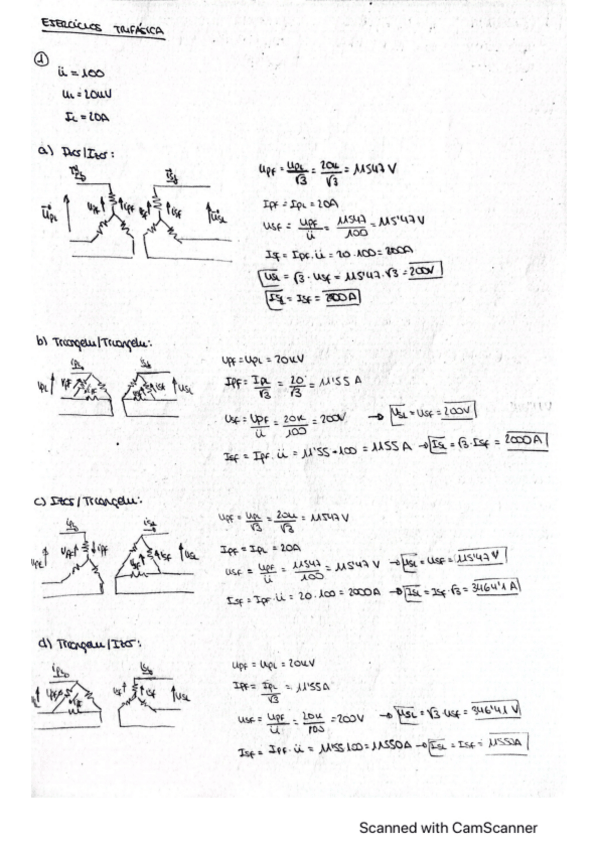 EJERCICIOS TRIFÁSICA
①
ü = 100
UL = 20kV
IL = 20A
a)
UPF = UPL/√3 = 20k/√3 = 11547 V
IPF = IPL = 20A
USF = UPF/ü = 11547/100 = 115'47 V
ISF = IPF · ü = 20 · 100 = 2000A
USL = √3 · USF = 115'47 · √3 = 200V
ISL = ISF = 2000A
b) Triangulu/Triangulu:
UPF = UPL = 20kV
IPF = IPL/√3 = 20/√3 = 11'55 A
USF = UPF/ü = 20k/100 = 200V → USL = USF = 200V
ISF = IPF · ü = 11'55 · 100 = 1155 A → ISL = √3 · ISF = 2000A
c) Izar/Triangelu:
UPF = UPL/√3 = 20k/√3 = 11547 V
IPF = IPL = 20A
USF = UPF/ü = 11547/100 = 115'47 V → USL = USF = 115'47 V
ISF = IPF · ü = 20 · 100 = 2000A → ISL = ISF · √3 = 3464'1 A
d) Triangelu/Izar:
UPF = UPL = 20kV
IPF = IPL/√3 = 11'55A
USF = UPF/ü = 20k/100 = 200V → USL = √3 · USF = 346'41 V
ISF = IPF · ü = 11'55 · 100 = 11550A → ISL = ISF = 11550A
Scanned with CamScanner